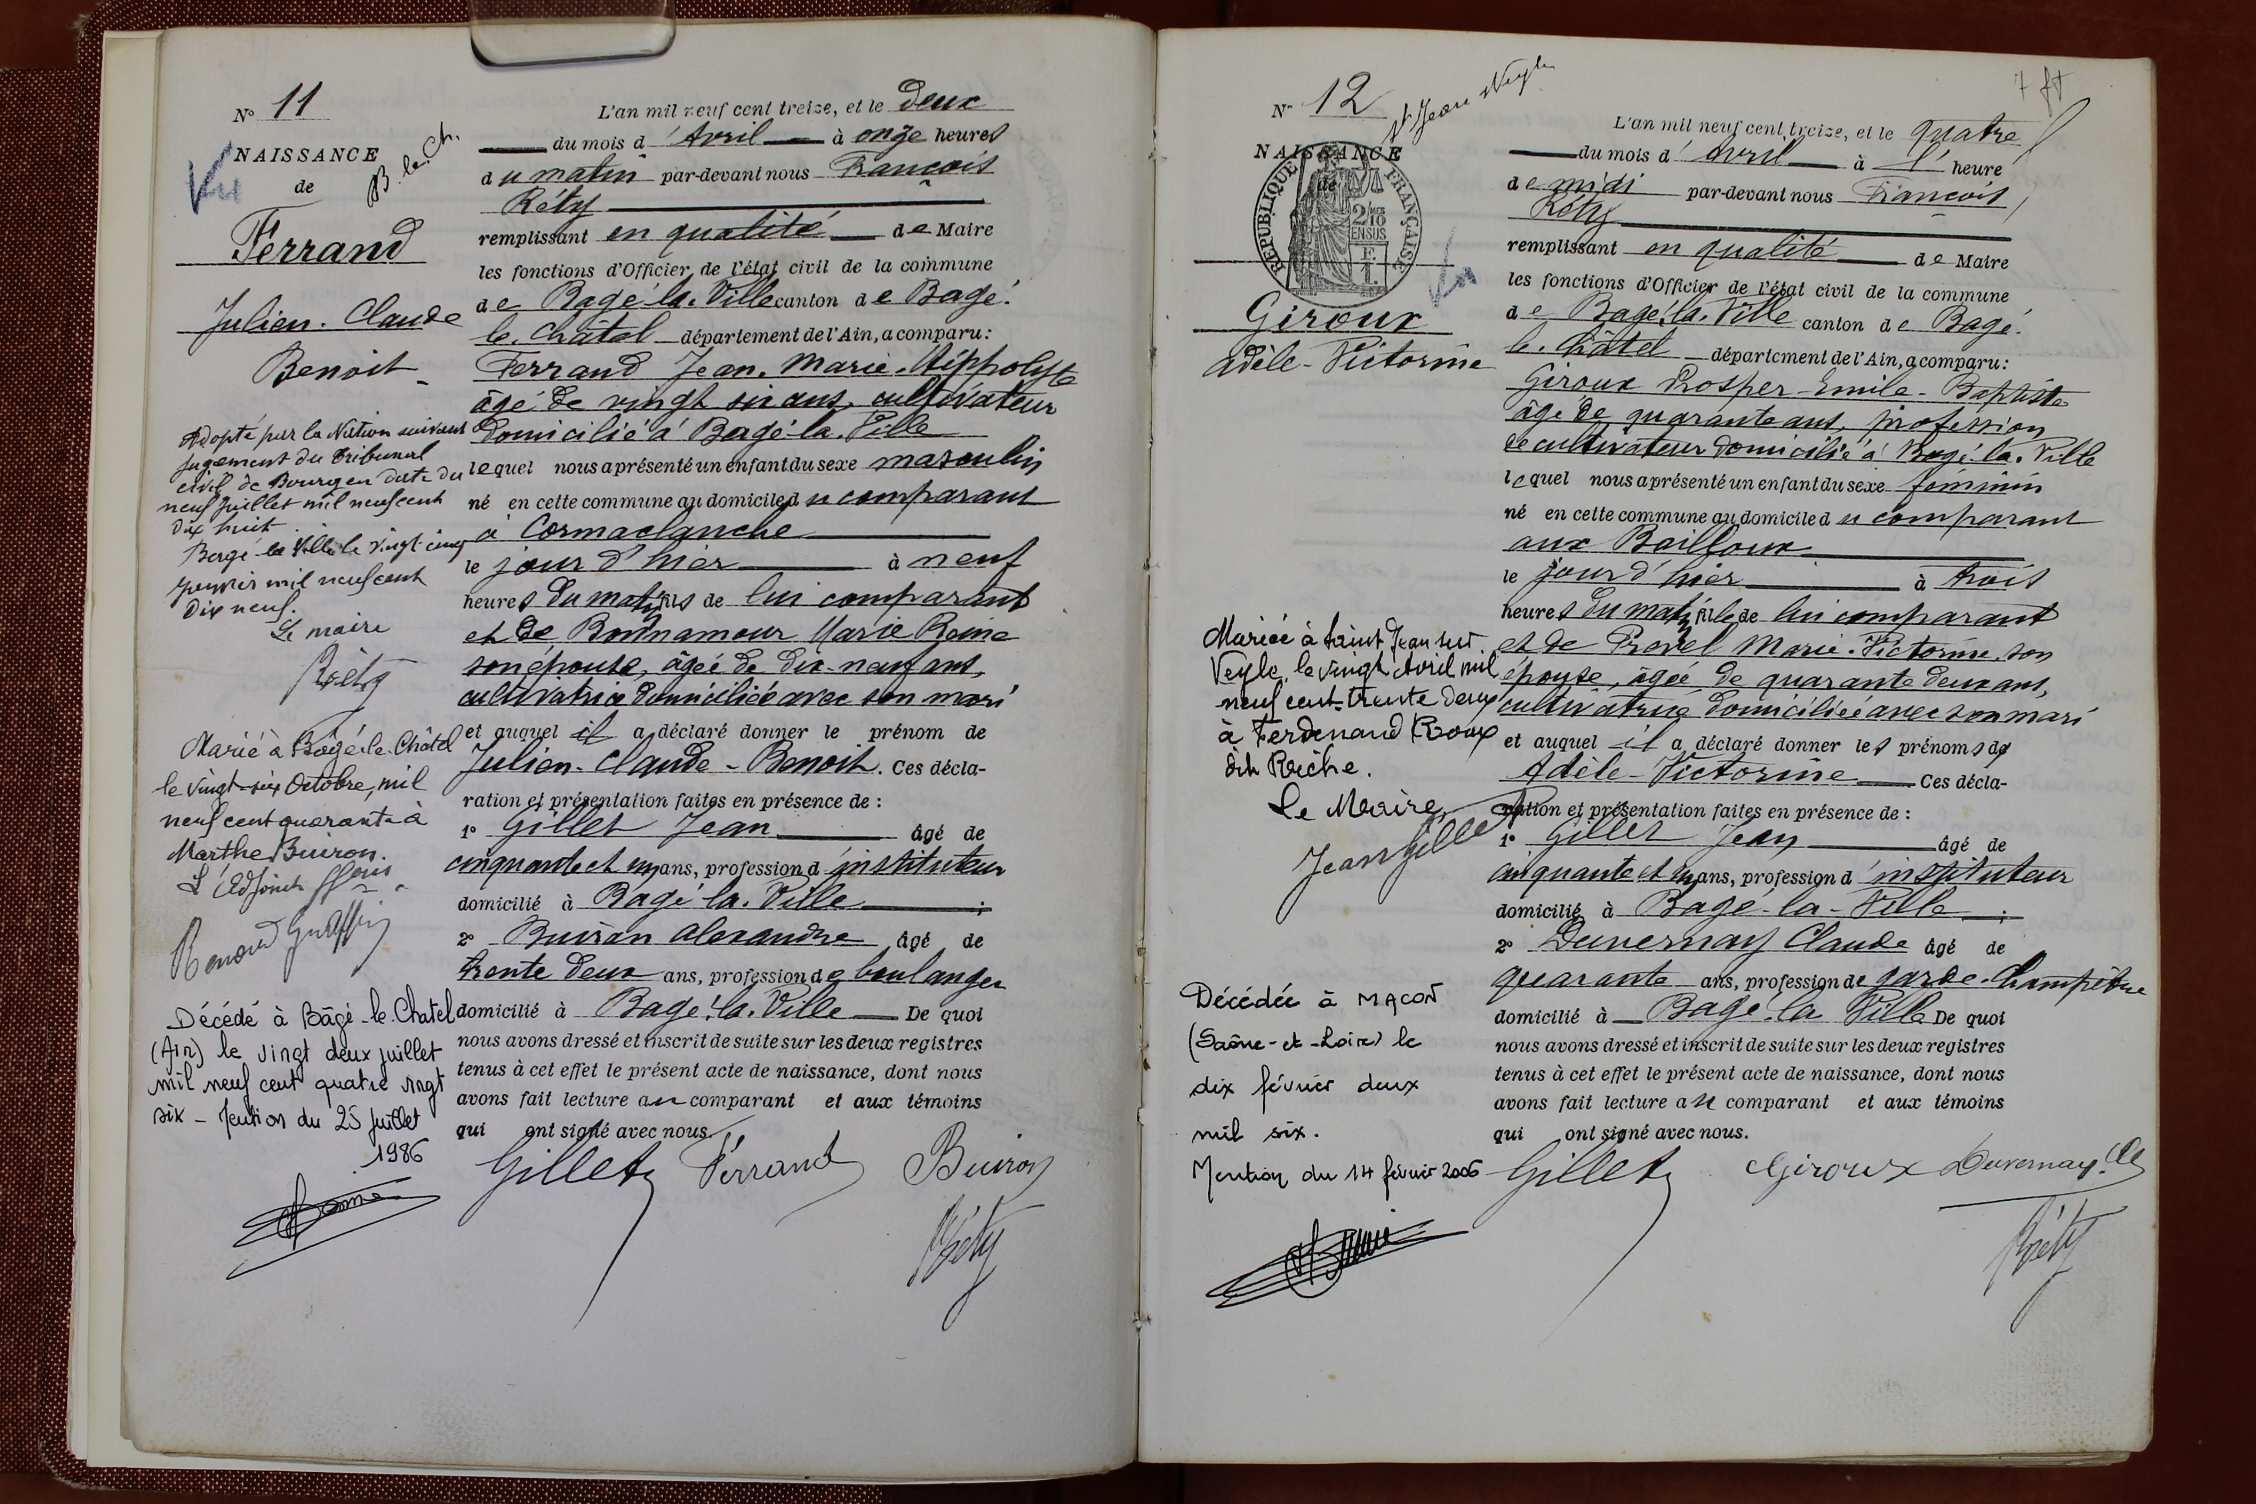 N° 11
NAISSANCE
de
B. le. Ch.
Vu
Ferrand
Julien. Claude
Benoit
Adopté par la Nation suivant
jugement du Tribunal
civil de Bourg en date du
neuf Juillet mil neuf cent
dix huit.
Bagé la Ville le vingt cinq
janvier mil neuf cent
dix neuf.
Le maire
Réty
Marié à Bagé-le-Châtel
le vingt-six Octobre, mil
neuf cent quarante à
Marthe Buiron.
L'Adjoint
Décédé à Bâgé-le-Chatel
(Ain) le vingt deux juillet
mil neuf cent quatre vingt
six - Mention du 25 juillet
1986
L'an mil neuf cent treize, et le deux
du mois d'Avril à onze heures
du matin par-devant nous François
Réty
remplissant en qualité de Maire
les fonctions d'Officier de l'état civil de la commune
de Bagé-la-Ville canton de Bagé-
le-Châtel département de l'Ain, a comparu:
Ferrand Jean-Marie-Hippolyte
âgé de vingt six ans, cultivateur
domicilié à Bagé-la-Ville
lequel nous a présenté un enfant du sexe masculin
né en cette commune au domicile du comparant
à Cormaclanche
le jour d'hier à neuf
heures du matin fils de lui comparant
et de Bonnamour Marie Reine
son épouse, âgée de dix-neuf ans,
cultivatrice domiciliée avec son mari
et auquel il a déclaré donner le prénom de
Julien-Claude-Benoit. Ces décla-
ration et présentation faites en présence de :
1° Gillet Jean âgé de
cinquante et un ans, profession d'instituteur
domicilié à Bagé-la-Ville ;
2° Buiron Alexandre âgé de
trente deux ans, profession de boulanger
domicilié à Bagé-la-Ville De quoi
nous avons dressé et inscrit de suite sur les deux registres
tenus à cet effet le présent acte de naissance, dont nous
avons fait lecture au comparant et aux témoins
qui ont signé avec nous.
Gillet Ferrand Buiron
Réty
7 ft
N° 12
St Jean s/Veyle
NAISSANCE
de
RÉPUBLIQUE FRANÇAISE
2/10 EN SUS
Vu
Giroux
Adèle-Victorine
Mariée à Saint Jean sur
Veyle, le vingt Avril mil
neuf cent trente deux
à Ferdinand Roux
dit Reiche.
Le Maire,
Jean Gillet
Décédée à MACON
(Saône-et-Loire) le
dix février deux
mil six.
Mention du 14 février 2006
L'an mil neuf cent treize, et le quatre
du mois d'Avril à l'heure
de midi par-devant nous François
Réty
remplissant en qualité de Maire
les fonctions d'Officier de l'état civil de la commune
de Bagé-la-Ville canton de Bagé-
le-Châtel département de l'Ain, a comparu:
Giroux Prosper-Emile-Baptiste
âgé de quarante ans, profession
de cultivateur domicilié à Bagé-la-Ville
lequel nous a présenté un enfant du sexe féminin
né en cette commune au domicile du comparant
aux Bailloux
le jour d'hier à trois
heures du matin fille de lui comparant
et de Prevel Marie-Victorine son
épouse, âgée de quarante deux ans,
cultivatrice domiciliée avec son mari
et auquel il a déclaré donner les prénoms de
Adèle-Victorine Ces décla-
ration et présentation faites en présence de :
1° Gillet Jean âgé de
cinquante et un ans, profession d'instituteur
domicilié à Bagé-la-Ville ;
2° Duvernay Claude âgé de
quarante ans, profession de garde-champêtre
domicilié à Bagé-la Ville De quoi
nous avons dressé et inscrit de suite sur les deux registres
tenus à cet effet le présent acte de naissance, dont nous
avons fait lecture au comparant et aux témoins
qui ont signé avec nous.
Gillet Giroux Duvernay. Cl
Réty